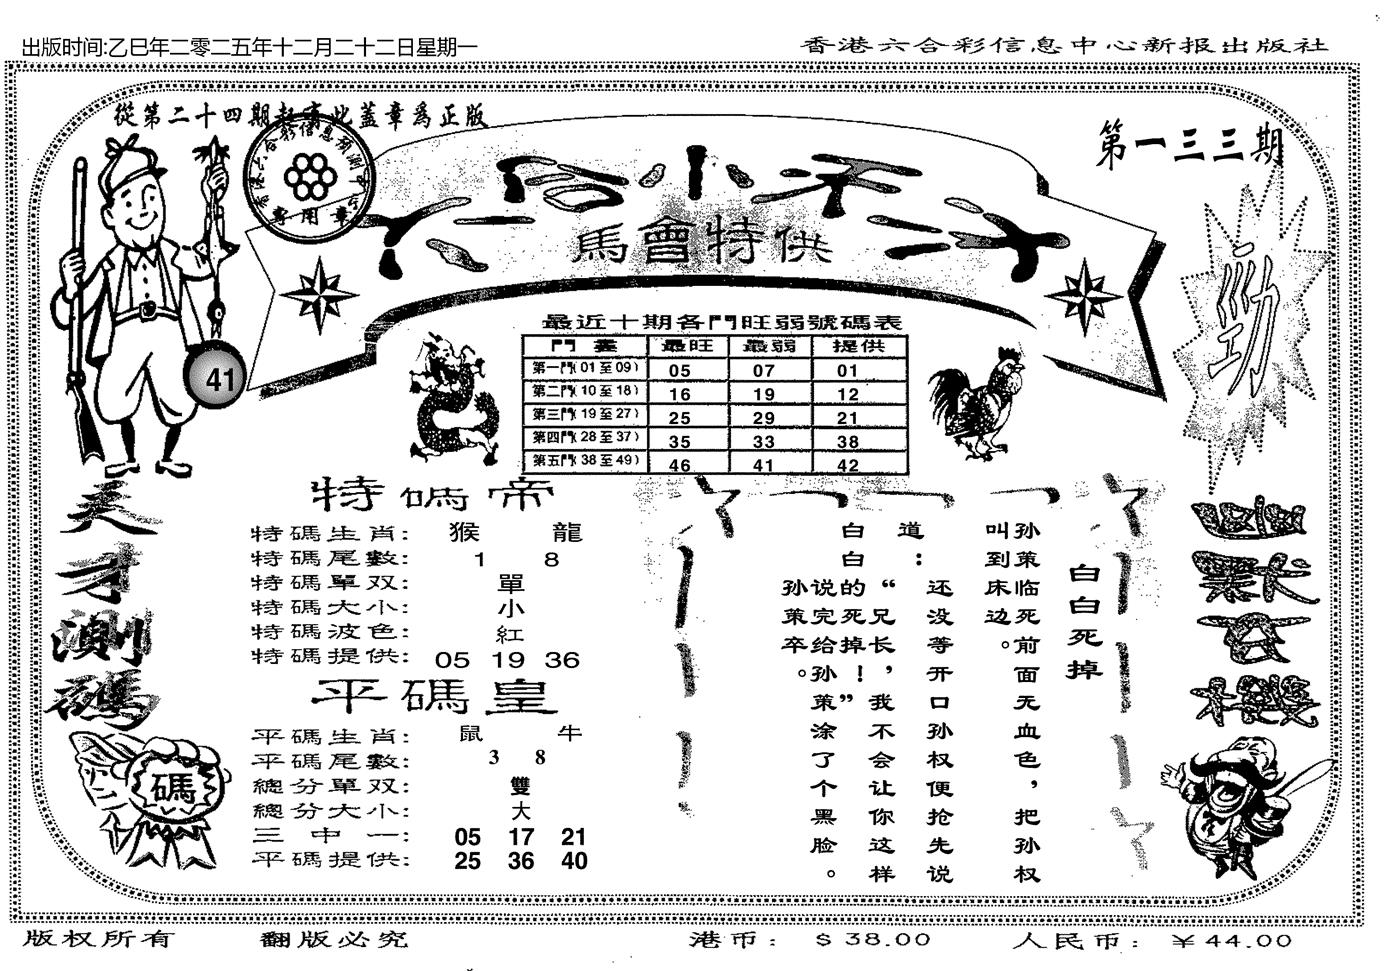 出版时间:乙巳年二零二五年十二月二十二日星期一
香港六合彩信息中心新报出版社
從第二十四期起憲此蓋章爲正版
香港六合彩信息预测中心
專用章
第一三三期
六合小天才
馬會特供
勁
41
最近十期各門旺弱號碼表
門 最旺 最弱 提供
第一門(01至09) 05 07 01
第二門(10至18) 16 19 12
第三門(19至27) 25 29 21
第四門(28至37) 35 33 38
第五門(38至49) 46 41 42
天才測碼
碼
特碼帝
特碼生肖: 猴 龍
特碼尾數: 1 8
特碼單双: 單
特碼大小: 小
特碼波色: 紅
特碼提供: 05 19 36
平碼皇
平碼生肖: 鼠 牛
平碼尾數: 3 8
總分單双: 雙
總分大小: 大
三中一: 05 17 21
平碼提供: 25 36 40
白白死掉
孙策临死前面无血色，把孙权
叫到床边。
还没等开口孙权便抢先说
道：“兄长，我不会让你这样
白白的死掉！”
孙说完给孙策涂了个黑脸。
孙策卒。
版权所有
翻版必究
港币: $38.00
人民币: ¥44.00